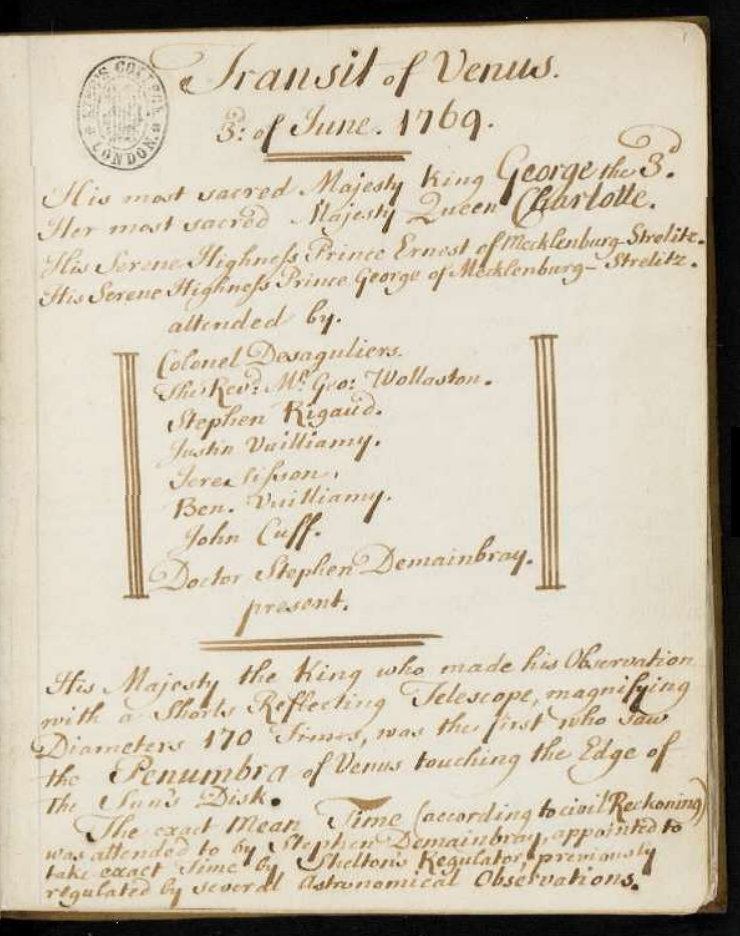 1
KING'S COLLEGE
LONDON
Transit of Venus.
3: of June. 1769.
His most sacred Majesty King George the 3.d
Her most sacred Majesty Queen Charlotte.
His Serene Highness Prince Ernest of Mecklenburg-Strelitz.
His Serene Highness Prince George of Mecklenburg-Strelitz.
attended by.
Colonel Desaguliers.
The Revd: Mr. Geo: Wollaston.
Stephen Rigaud.
Justin Vuilliamy.
Jere
Ben. Vuilliamy.
John Cuff.
Doctor Stephen Demainbray.
present.
His Majesty the King who made his Observation
with a Shorts Reflecting Telescope, magnifying
Diameters 170 Times, was the first who saw
the Penumbra of Venus touching the Edge of
the Sun's Disk.
The exact Mean Time (according to civil Reckoning)
was attended to by Stephen Demainbray, appointed to
take exact Time by Shelton's Regulator, previously
regulated by several Astronomical Observations.